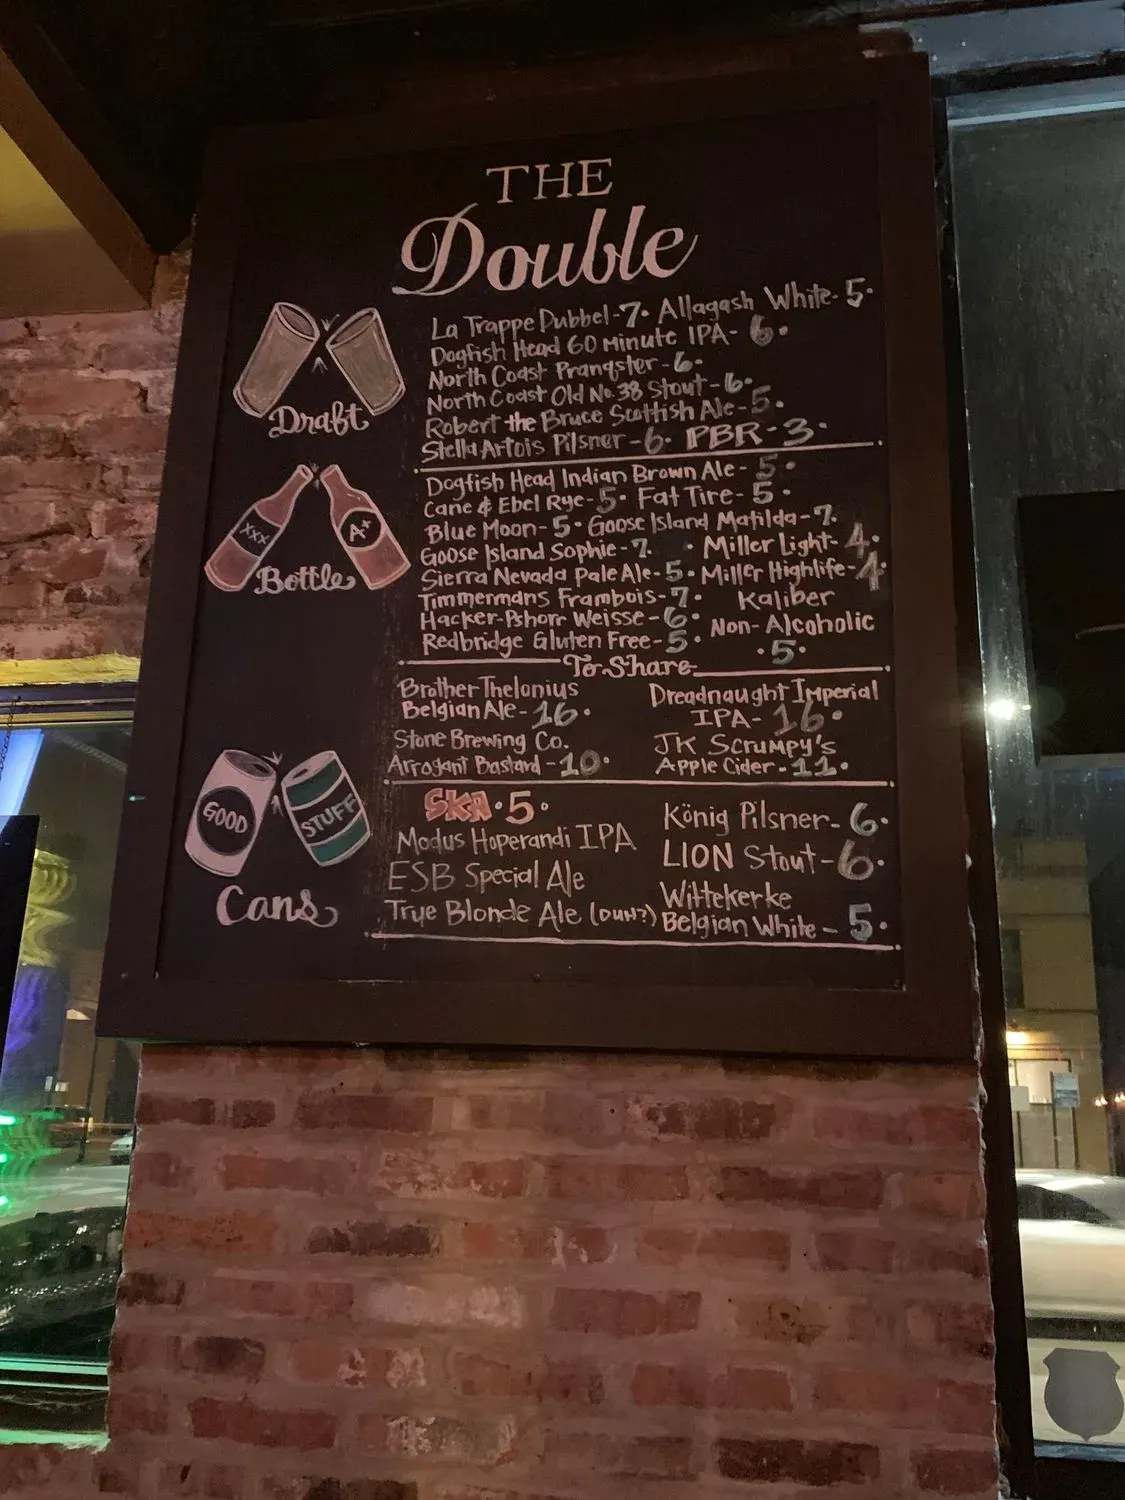 THE
Double
Draft
La Trappe Dubbel-7· Allagash White-5·
Dogfish Head 60 Minute IPA-6·
North Coast Pranqster-6·
North Coast Old No.38 Stout-6·
Robert the Bruce Scottish Ale-5·
Stella Artois Pilsner-6· PBR-3·
XXX
A+
Bottle
Dogfish Head Indian Brown Ale-5·
Cane & Ebel Rye-5· Fat Tire-5·
Blue Moon-5· Goose Island Matilda-7·
Goose Island Sophie-7· · Miller Light-4·
Sierra Nevada Pale Ale-5· Miller Highlife-4·
Timmermans Frambois-7· Kaliber
Hacker-Pshorr Weisse-6· Non-Alcoholic
Redbridge Gluten Free-5· ·5·
To Share
Brother Thelonius
Belgian Ale-16·
Dreadnaught Imperial
IPA-16·
Stone Brewing Co.
Arrogant Bastard-10·
JK Scrumpy's
Apple Cider-11·
GOOD
STUFF
Cans
SKA·5·
Modus Hoperandi IPA
ESB Special Ale
True Blonde Ale (DUH?)
König Pilsner-6·
LION Stout-6·
Wittekerke
Belgian White-5·